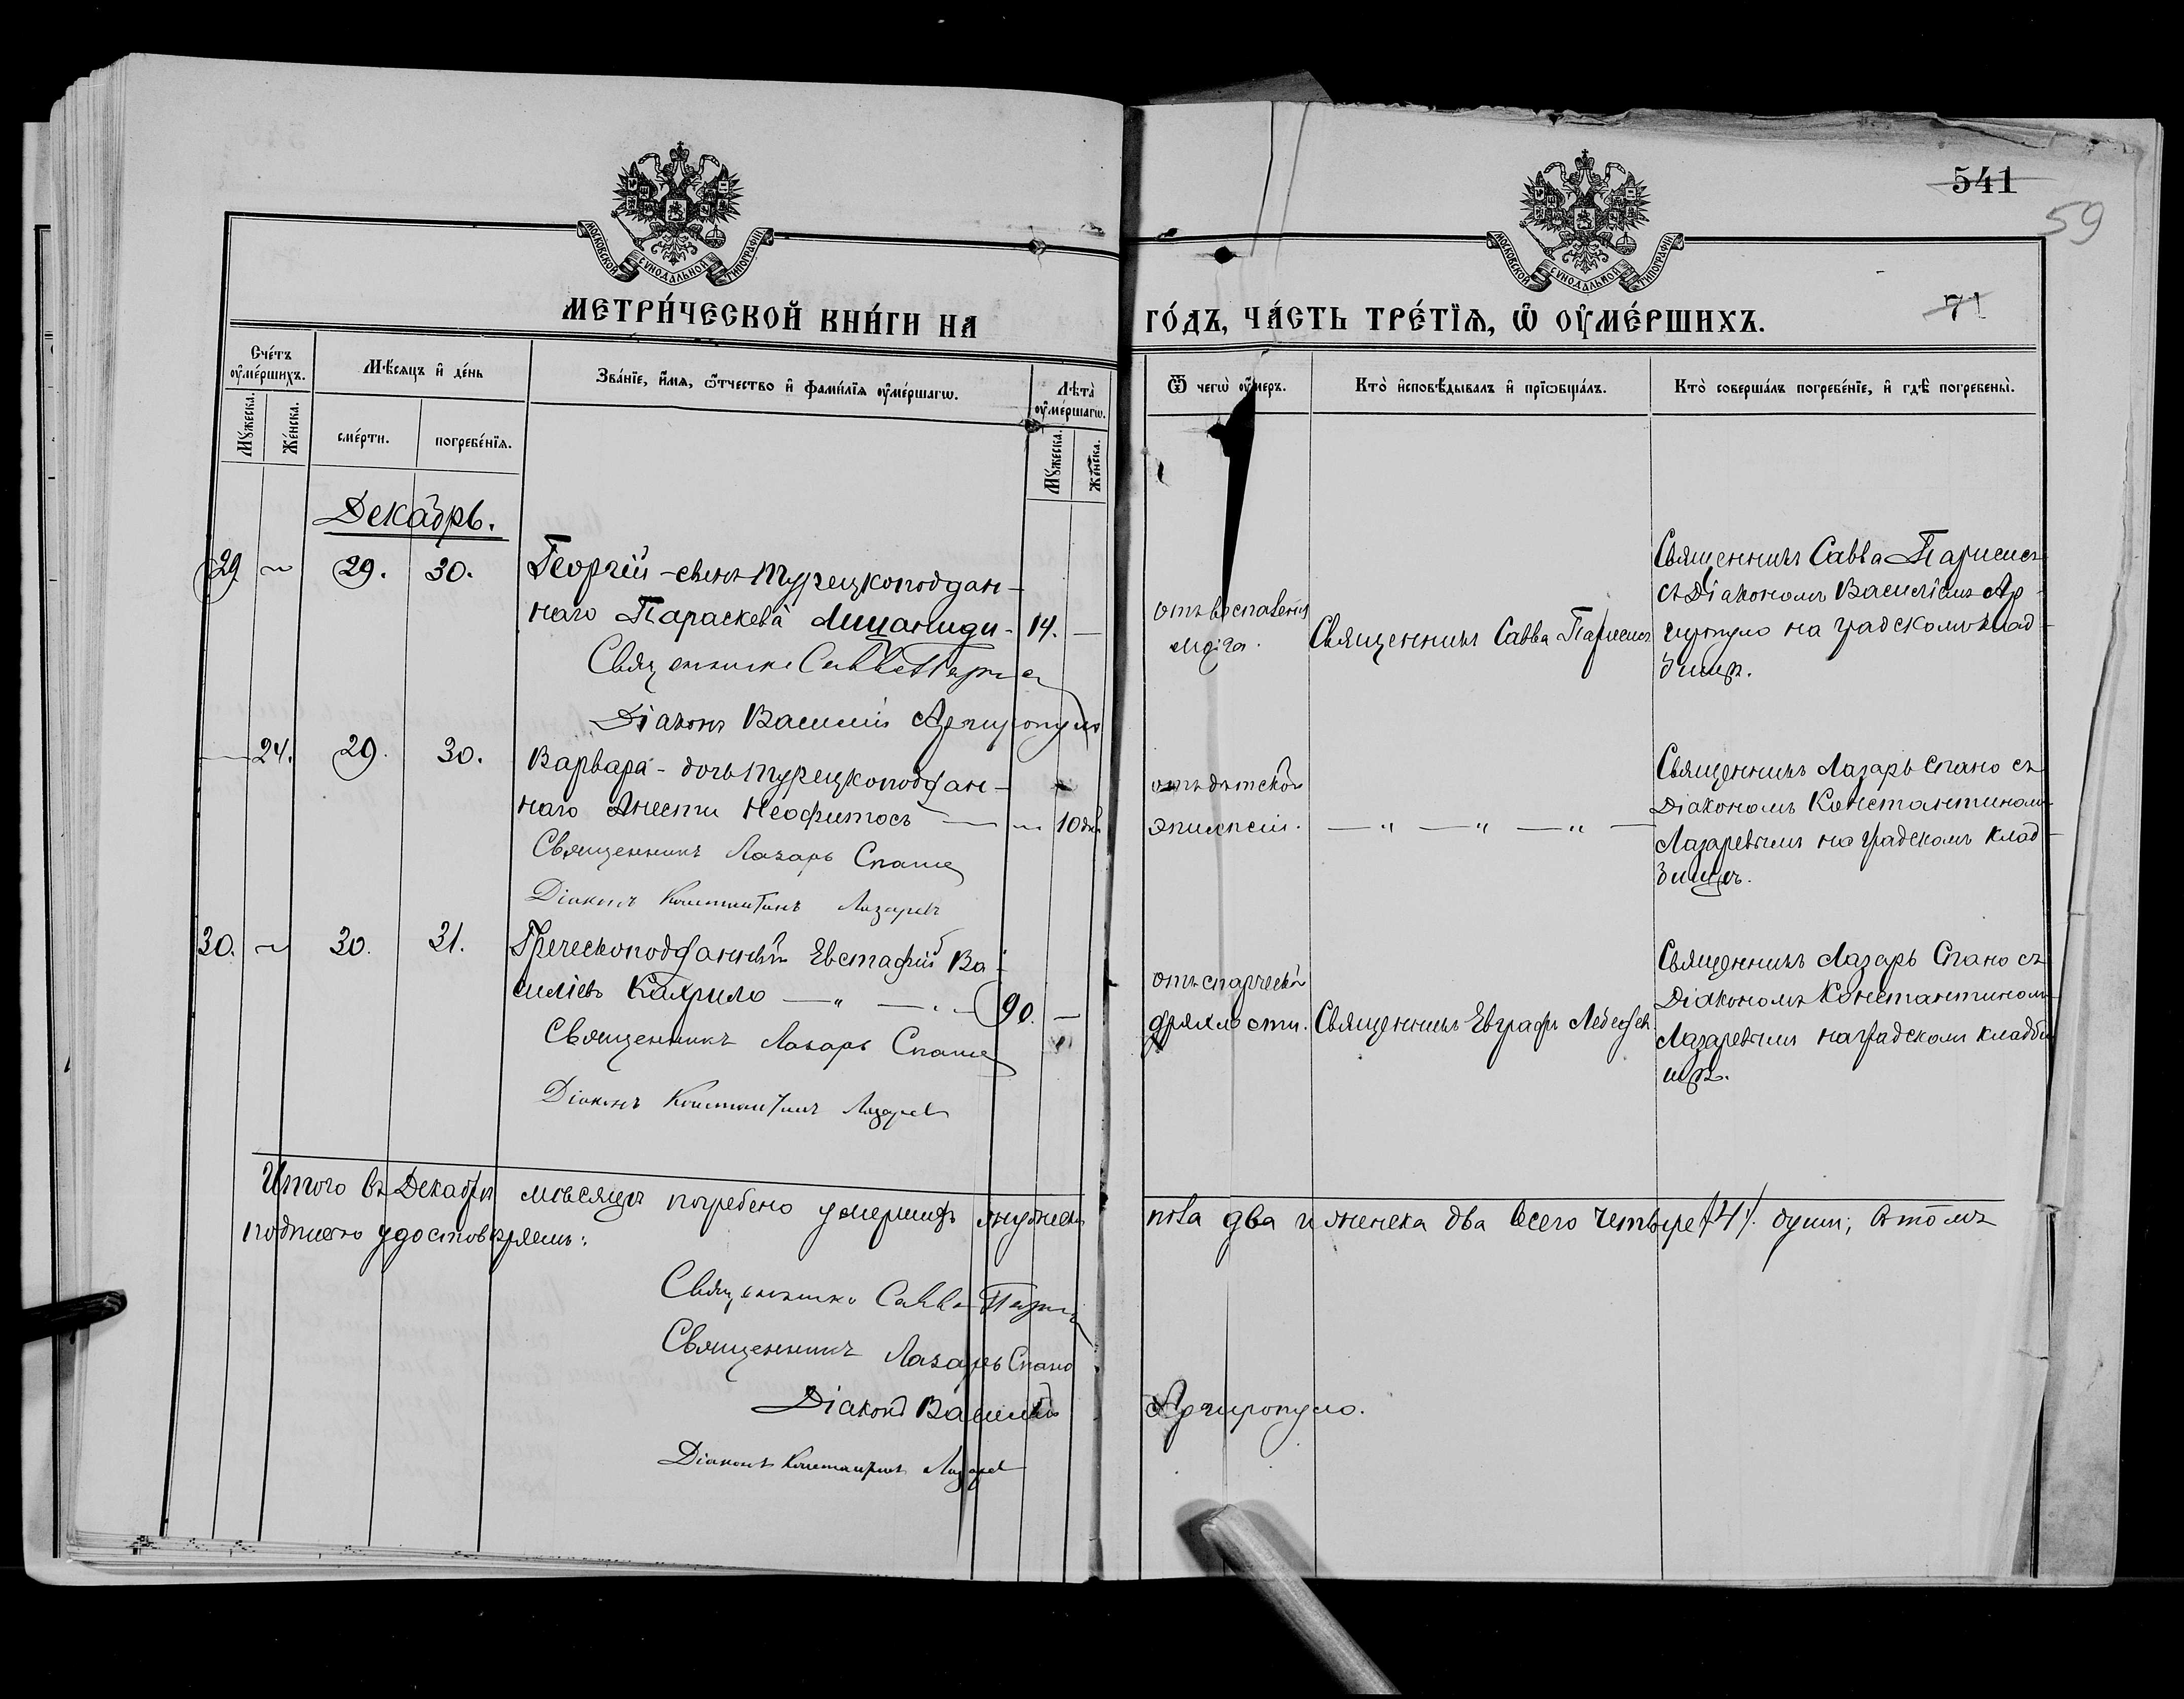 541
59
71
МОСКОВСКОЙ СѴНОДАЛЬНОЙ ТИПОГРАФІИ
МОСКОВСКОЙ СѴНОДАЛЬНОЙ ТИПОГРАФІИ
МЕТРИ́ЧЕСКОЙ КНИ́ГИ НА
ГО́ДЪ, ЧА́СТЬ ТРЕ́ТЇѦ, Ѡ҆ ОУ҆МЕ́РШИХЪ.
Сче́тъ оу҆ме́ршихъ.
Мꙋ́жеска.
Же́нска.
Мѣ́сяцъ и҆ де́нь
сме́рти.
погребе́нїѧ.
Зва́нїе, и҆́мѧ, ѻ҆́тчество и҆ фами́лїѧ оу҆ме́ршагѡ.
Лѣ́та оу҆ме́ршагѡ.
Мꙋ́жеска.
Же́нска.
Ѿ чегѡ̀ оу҆́меръ.
Кто̀ и҆сповѣ́дывалъ и҆ прїѡбща́лъ.
Кто̀ соверша́лъ погребе́нїе, и҆ гдѣ̀ погребены̀.
Декабрь.
29 29. 30. Георгій - сынъ Турецкоподдан-
наго Параскева Лицаниди - 14. —
Священникъ Савва Париси
Діаконъ Василій Аргиропуло
отъ воспаленія
Священникъ Савва Парисисъ
Священникъ Савва Парисисъ
съ Діакономъ Василіемъ Ар-
гиропуло на градскомъ клад-
бищѣ.
— 24. 29. 30. Варвара - дочь Турецкоподдан-
наго Анести Неофитосъ — 10 дн.
Священникъ Лазарь Спано
Діаконъ Константинъ Лазаревъ
отъ дѣтской
эпилепсіи.
— " — " — " —
Священникъ Лазарь Спано съ
Діакономъ Константиномъ
Лазаревымъ на градскомъ клад-
бищѣ.
30. 30. 31. Греческоподданный Евстафій Ва-
силіевъ Кахрило — " — 90. —
Священникъ Лазарь Спано
Діаконъ Константинъ Лазаревъ
отъ старческой
дряхлости.
Священникъ Евграфъ Лебедев
Священникъ Лазарь Спано съ
Діакономъ Константиномъ
Лазаревымъ на градскомъ кладби-
щѣ.
Итого въ Декабрѣ мѣсяцѣ погребено умершихъ мужеска
пола два и женска два всего четыре /4/. души; въ томъ
подписью удостовѣряемъ:
Священникъ Савва Париси
Священникъ Лазарь Спано
Діаконъ Василій Аргиропуло.
Діаконъ Константинъ Лазарев